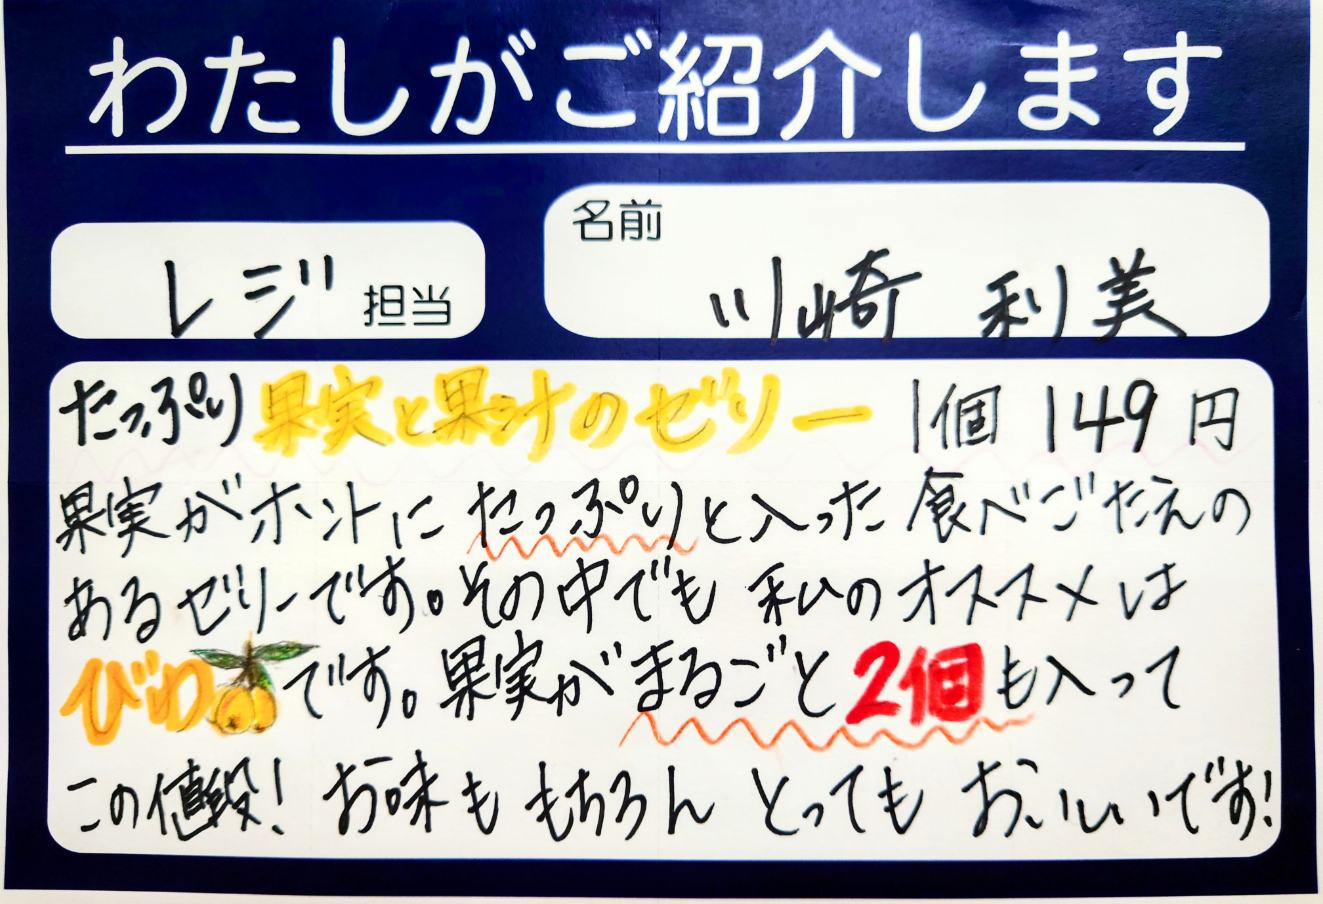 わたしがご紹介します
レジ 担当
名前
川崎 利美
たっぷり果実と果汁のゼリー 1個 149円
果実がホントにたっぷりと入った食べごたえの
あるゼリーです。その中でも私のオススメは
びわです。果実がまるごと2個も入って
この値段! お味ももちろんとってもおいしいです!